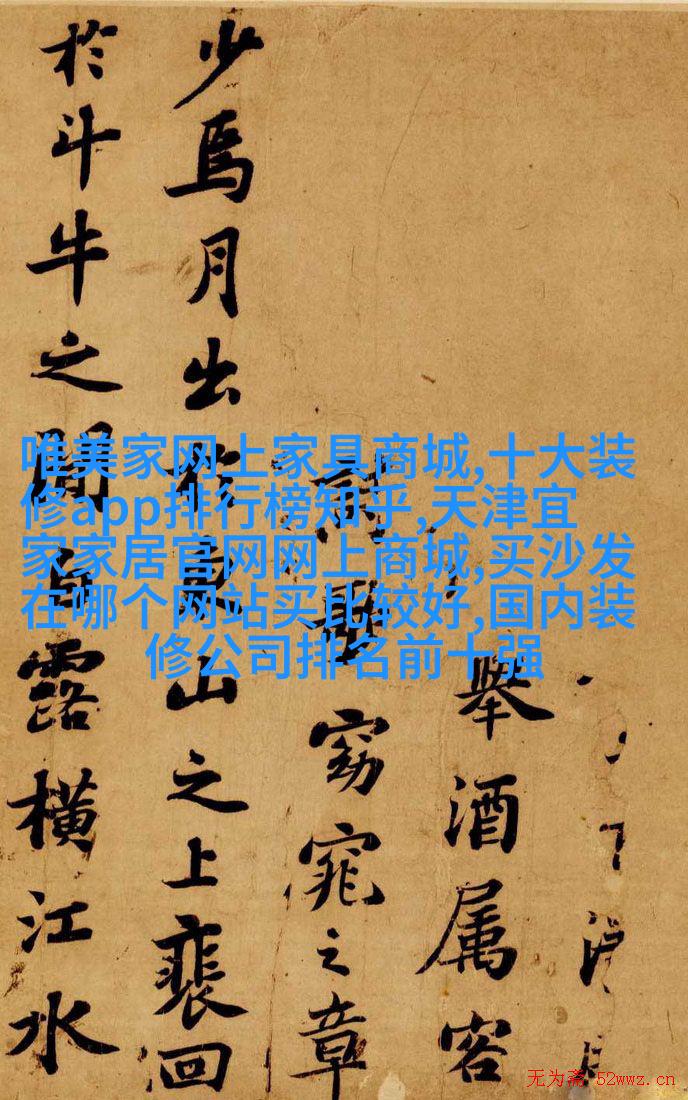 舉酒属客
窈窕之章
少焉月出於東山之上裴回
於斗牛之間白露橫江水
唯美家网上家具商城,十大装
修app排行榜知乎,天津宜
家家居官网网上商城,买沙发
在哪个网站买比较好,国内装
修公司排名前十强
无为斋 52wwz.cn